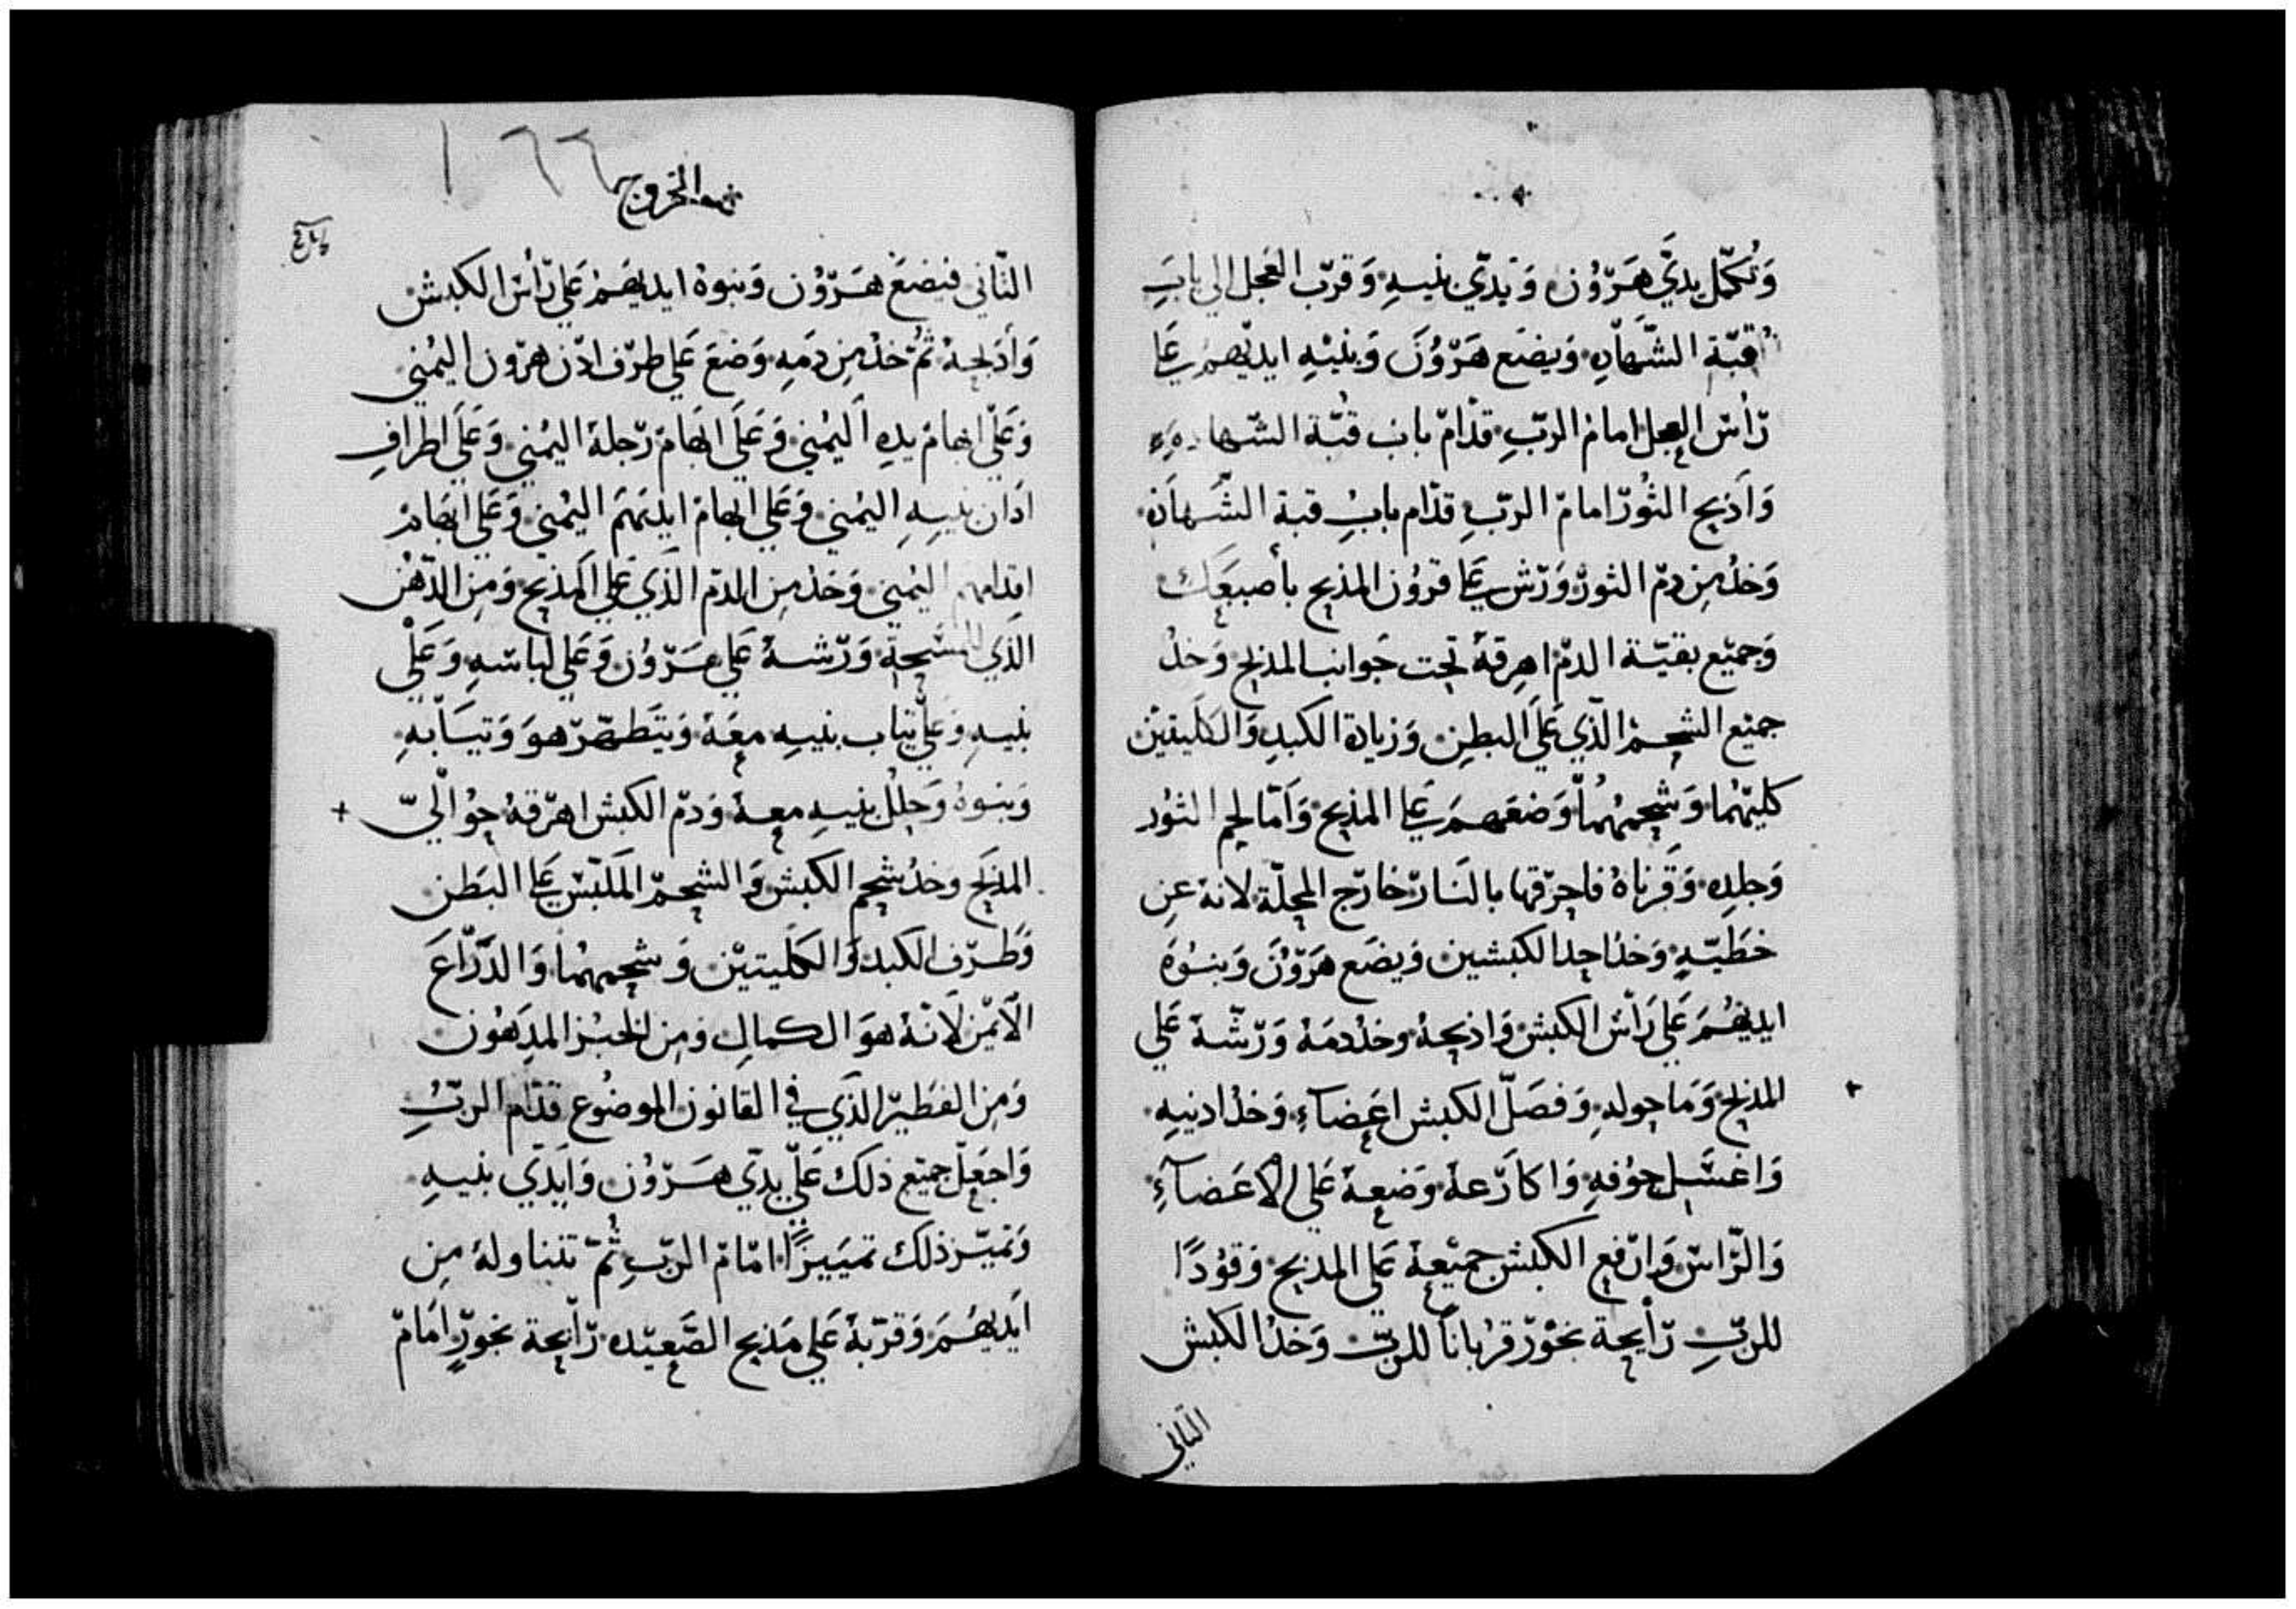 وَتُكمّل يدَيّ هَرّوُن وَيدّي بنيهِ وَقرّب العجل الي بابَ
قبّة الشّهاَدِه وَيضَع هَرّوُنَ وَبنيْهِ ايديْهمْ عَلي
رّأسّ العجل امامْ الربّ قدّامّ باب قُبّة الشّهادهَ
وَاَذبح الثوُرّ امامّ الربّ قدّام بابُ قبة الشّهاَده
وَخدُ مِن دمّ الثورّ وَرّش علي قروُن المذبح بأصبعَك
وَجميّع بقيّة الدمّ اهرِقهُ تحت جَوانب المذبح وَخدُ
جميّع الشحمْ الذّي عَلَي البطِن وَزيادة الكبدِ وَالكليتيْن
كليتهُما وَشحمهُماُ وَضعَهمَ علي المذبح وَأمّا لحم الثوُر
وَجلدِه وَقرناهُ فاحرّقها بالنَارّ خارّج المحلّة لانهُ عنِ
خطَيّهِ وَخدُ احد الكبشين وَيضَع هَرّوُنَ وَبنوُهَ
ايديْهُمَ عَلي رَأسّ الكبش وَاذبحهُ وخدُ دمَهُ وَرّشّهُ عَلي
المذبح وَمَا حولهِ وَفصَلّ الكبش اعَضاَءِ وَخدُ ادنيهِ
وَاغسَل جوُفهِ وَاكاَرّعهُ وَضعهُ عَلي الاعَضاَءِ
وَالرّاسّ وَارّفع الكبش جميْعهُ عَلي المذبح وَقوُدًا
للربّ رّأيحة بخوُرّ قرُباناً للربّ وَخدُ الكبش
التاني
الخروج
١٦٦
التّاني فيضعَ هَرّوُن وَبنوهُ ايديهَمْ عَلي رّأسّ الكبش
وَأدَبحهُ ثُمّ خدُ مِن دَمَهِ وَضعَ عَلي طرّف ادّن هرّون اليمُني
وَعَلّي ابهامْ يدهِ اَليمُني وَعَلَي ابَهامْ رّجلهُ اليمُني وَعَلَي اطرافِ
ادَان بنيهِ اليمُني وَعَلي ابهامْ ايديَهَمَ اليمُني وَعَلي ابهَامْ
اقدامهم اليمُني وَخدُ مِن الدمّ الذَي عَلي المذبح وَمِن الدّهْن
الذَي للمسَحة وَرّشهُ عَلي هَرّوُن وَعَلي لباسّهِ وَعَلْي
بنيهِ وَعَلّي تياب بنيهِ معَهُ وَيتَطهّرّ هوَ وَتيَاَبهِ
وَبنوهُ وَحللُ بنيهِ معهُ وَدمّ الكبش اهرّقهُ حوُالّيّ
المذبَح وخدُ شحم الكبش وَالشحمّ المَلبّسّ عَلي البَطن
وَطرّف الكبد وَالكليتيْن وَشحمهمُا وَالدَرّاعَ
الاَيمْن لاَنّهُ هوَ الكمالِ وَمِن الخبُز المدِهوُن
وَمِن الفطَيّرّ الذَي في القانون الموضوُع قدّام الربّ
وَاجعَلّ جميّع ذلك عَلّي يدّي هَرّوُن وَاَيدّي بنيهِ
وَتميّز ذلك تميَيزًا امّامّ الربّ ثُمّ تتناولهُ مِن
اَيديهُمَ وَقرّبهُ عَلي مَذبح الصَعيّده رّأيحة بخورّ امَامّ